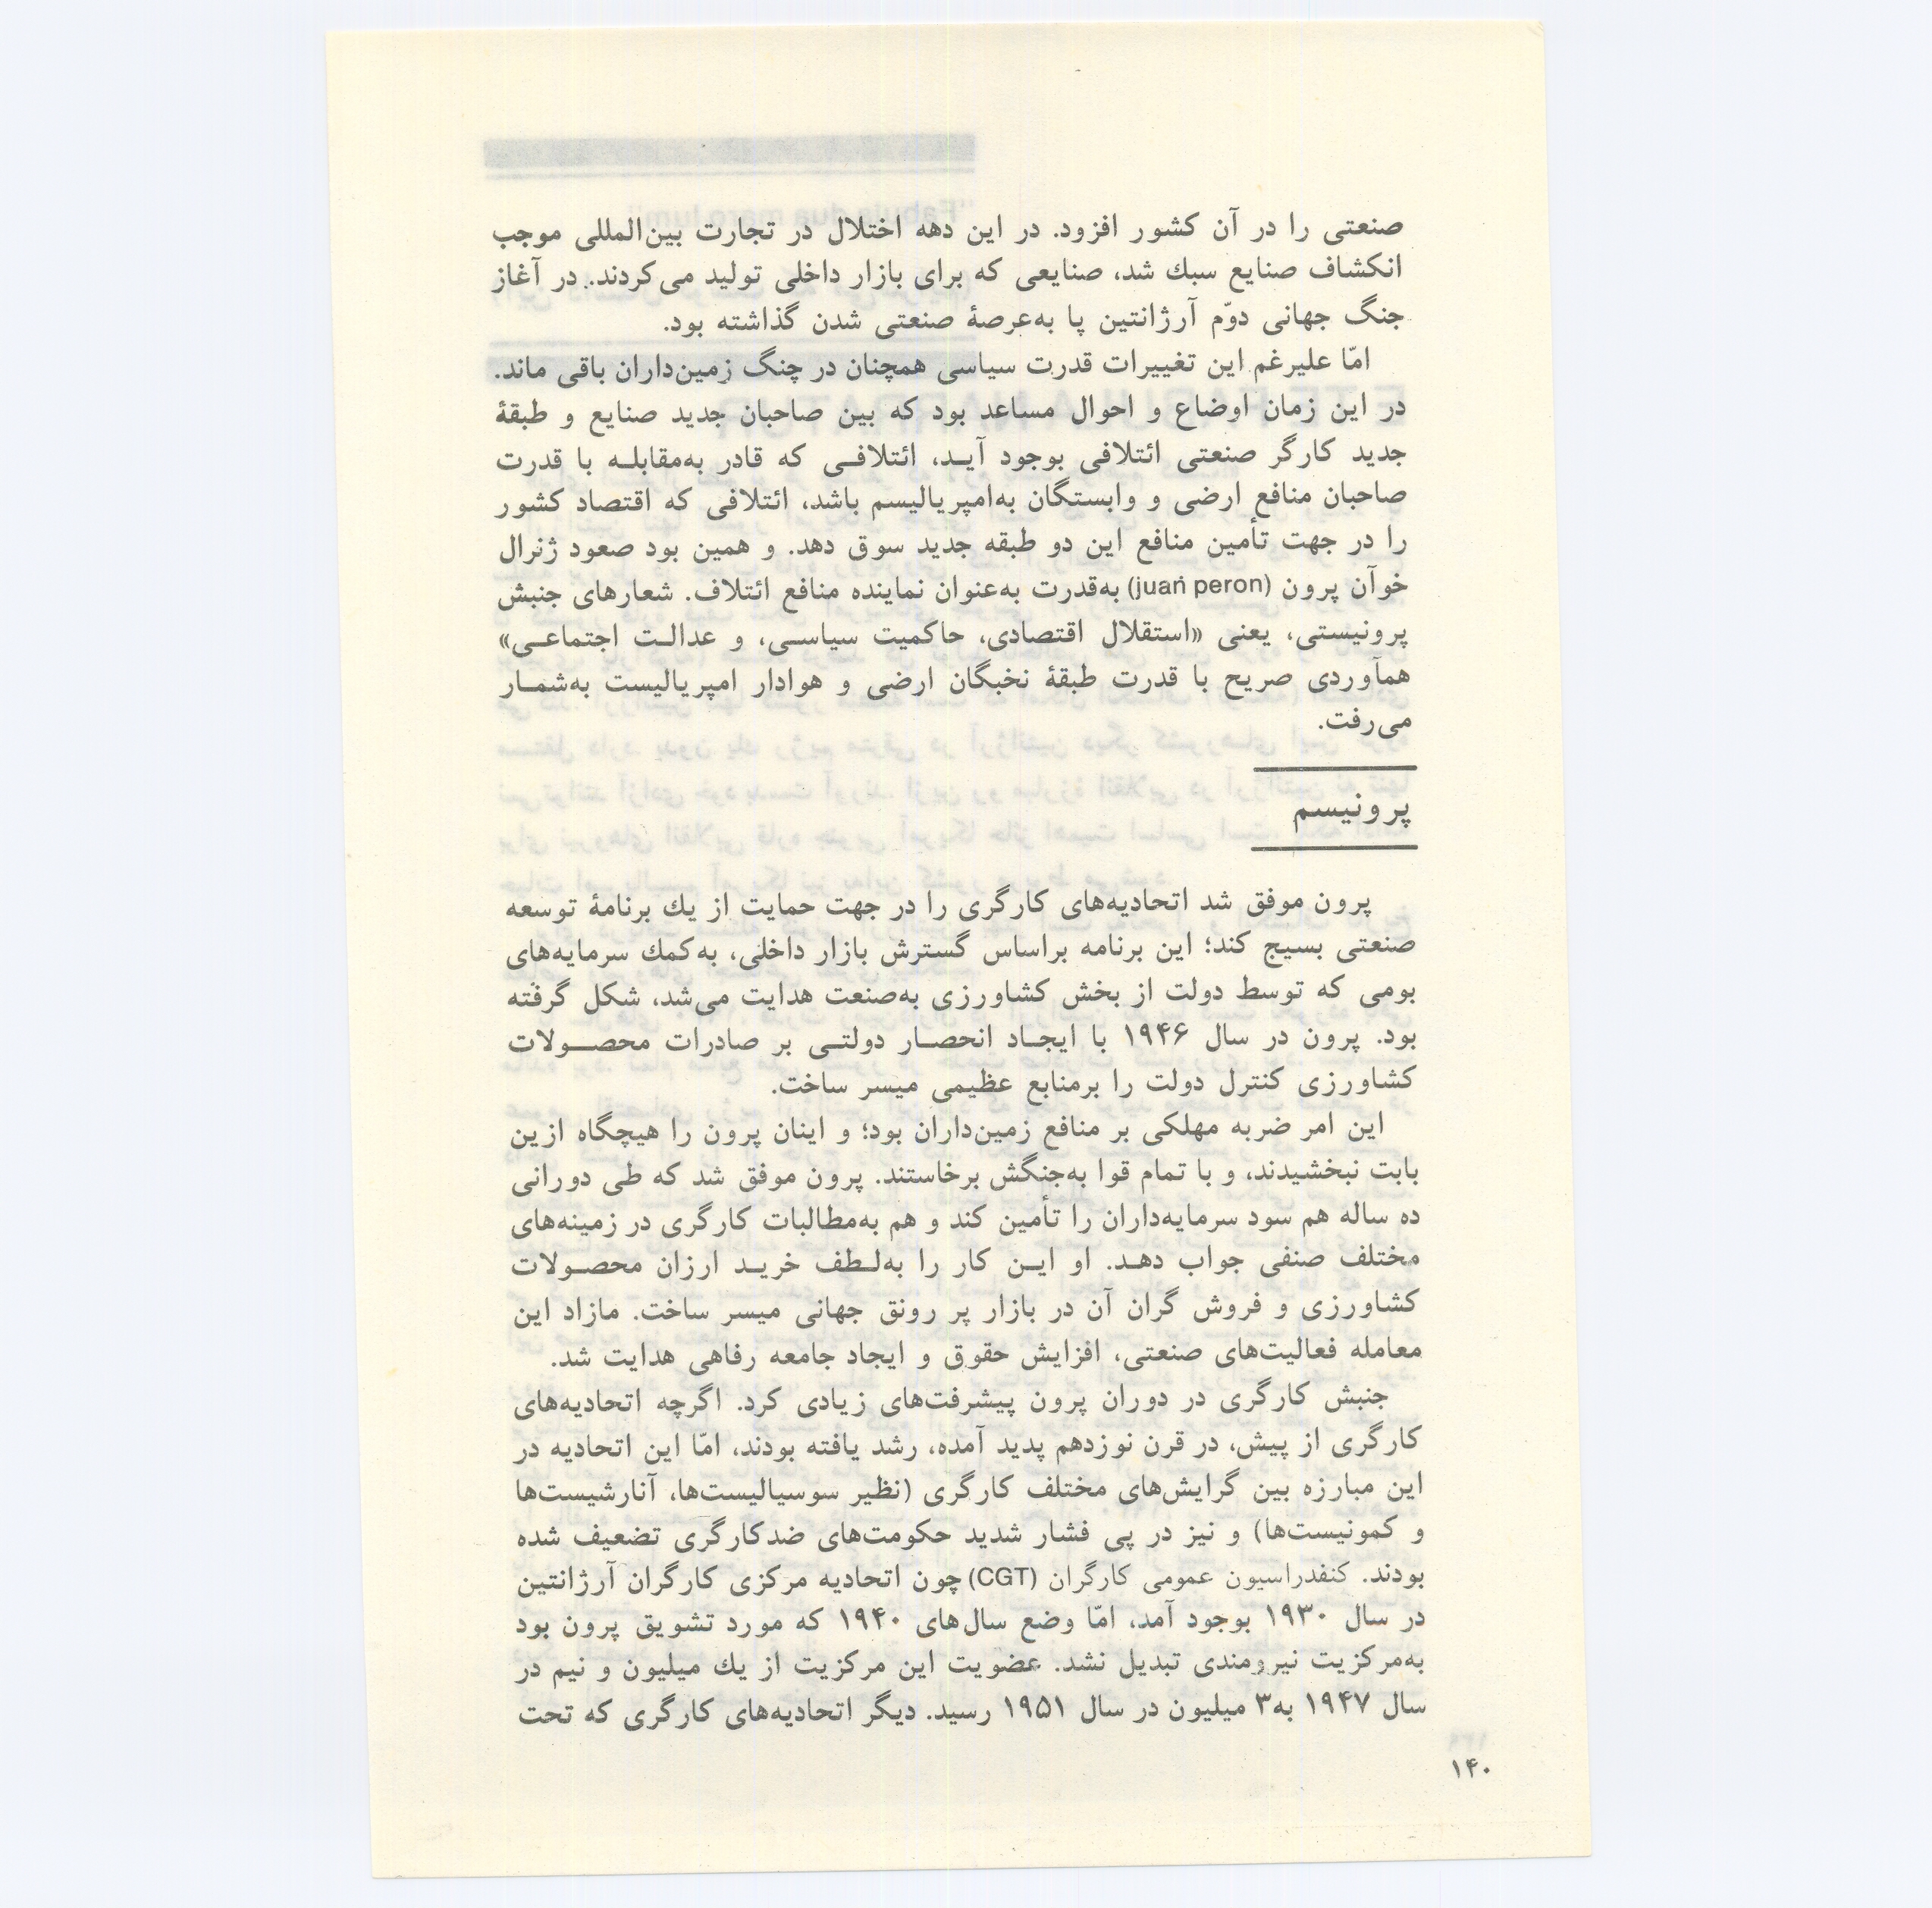 صنعتی را در آن کشور افزود. در این دهه اختلال در تجارت بین‌المللی موجب
انکشاف صنایع سبك شد، صنایعی که برای بازار داخلی تولید می‌کردند. در آغاز
جنگ جهانی دوّم آرژانتین پا به‌عرصهٔ صنعتی شدن گذاشته بود.
امّا علیرغم این تغییرات قدرت سیاسی همچنان در چنگ زمین‌داران باقی ماند.
در این زمان اوضاع و احوال مساعد بود که بین صاحبان جدید صنایع و طبقهٔ
جدید کارگر صنعتی ائتلافی بوجود آیـد، ائتلافـی که قادر به‌مقابلـه با قدرت
صاحبان منافع ارضی و وابستگان به‌امپریالیسم باشد، ائتلافی که اقتصاد کشور
را در جهت تأمین منافع این دو طبقه جدید سوق دهد. و همین بود صعود ژنرال
خوآن پرون (juan peron) به‌قدرت به‌عنوان نماینده منافع ائتلاف. شعارهای جنبش
پرونیستی، یعنی «استقلال اقتصادی، حاکمیت سیاسـی، و عدالـت اجتماعـی»
همآوردی صریح با قدرت طبقهٔ نخبگان ارضی و هوادار امپریالیست به‌شمـار
می‌رفت.
پرونیسم
پرون موفق شد اتحادیه‌های کارگری را در جهت حمایت از یك برنامهٔ توسعه
صنعتی بسیج کند؛ این برنامه براساس گسترش بازار داخلی، به‌کمك سرمایه‌های
بومی که توسط دولت از بخش کشاورزی به‌صنعت هدایت می‌شد، شکل گرفته
بود. پرون در سال ۱۹۴۶ با ایجـاد انحصـار دولتـی بر صادرات محصـولات
کشاورزی کنترل دولت را برمنابع عظیمی میسر ساخت.
این امر ضربه مهلکی بر منافع زمین‌داران بود؛ و اینان پرون را هیچگاه ازین
بابت نبخشیدند، و با تمام قوا به‌جنگش برخاستند. پرون موفق شد که طی دورانی
ده ساله هم سود سرمایه‌داران را تأمین کند و هم به‌مطالبات کارگری در زمینه‌های
مختلف صنفی جواب دهـد. او ایـن کار را به‌لـطف خریـد ارزان محصـولات
کشاورزی و فروش گران آن در بازار پر رونق جهانی میسر ساخت. مازاد این
معامله فعالیت‌های صنعتی، افزایش حقوق و ایجاد جامعه رفاهی هدایت شد.
جنبش کارگری در دوران پرون پیشرفت‌های زیادی کرد. اگرچه اتحادیه‌های
کارگری از پیش، در قرن نوزدهم پدید آمده، رشد یافته بودند، امّا این اتحادیه در
این مبارزه بین گرایش‌های مختلف کارگری (نظیر سوسیالیست‌ها، آنارشیست‌ها
و کمونیست‌ها) و نیز در پی فشار شدید حکومت‌های ضدکارگری تضعیف شده
بودند. کنفدراسیون عمومی کارگران (CGT) چون اتحادیه مرکزی کارگران آرژانتین
در سال ۱۹۳۰ بوجود آمد، امّا وضع سال‌های ۱۹۴۰ که مورد تشویق پرون بود
به‌مرکزیت نیرومندی تبدیل نشد. عضویت این مرکزیت از یك میلیون و نیم در
سال ۱۹۴۷ به۳ میلیون در سال ۱۹۵۱ رسید. دیگر اتحادیه‌های کارگری که تحت
۱۴۰